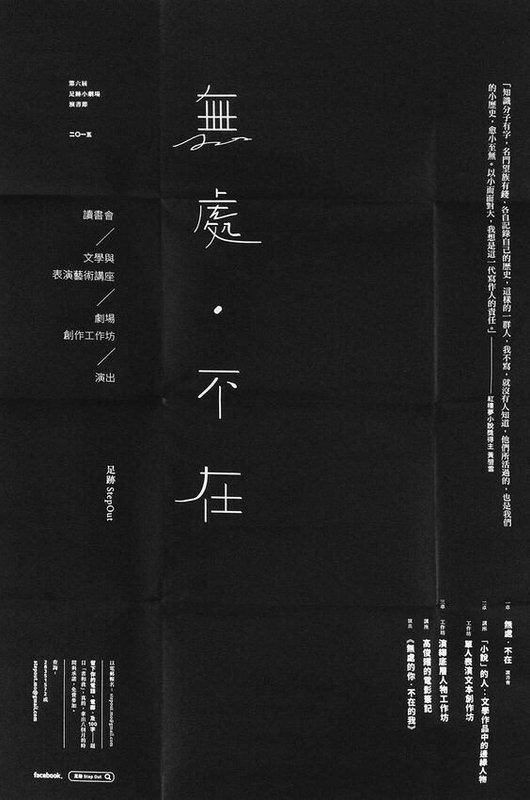 「知識分子有字，名門望族有錢，各自記錄自己的歷史，這樣的一群人，我不寫，就沒有人知道，他們所活過的，也是我們
的小歷史，愈小至無。以小而面對大，我想是這一代寫作人的責任。」——紅樓夢小說獎得主 黃碧雲
無處・不在
第六屆
足跡小劇場
演書節
二〇一五
讀書會
／
文學與
表演藝術講座
／
劇場
創作工作坊
／
演出
足跡 StepOut
無處・不在
講座 「小說」的人：文學作品中的邊緣人物
工作坊 單人表演文本創作坊
工作坊 演繹底層人物工作坊
講座 高俊耀的電影筆記
演出 《無處的你・不在的我》
以電郵報名：stepout.mo@gmail.com
留下你的電話、電郵、及100字
查詢：
28751572 或
stepout.mo@gmail.com
facebook. 足跡 Step Out